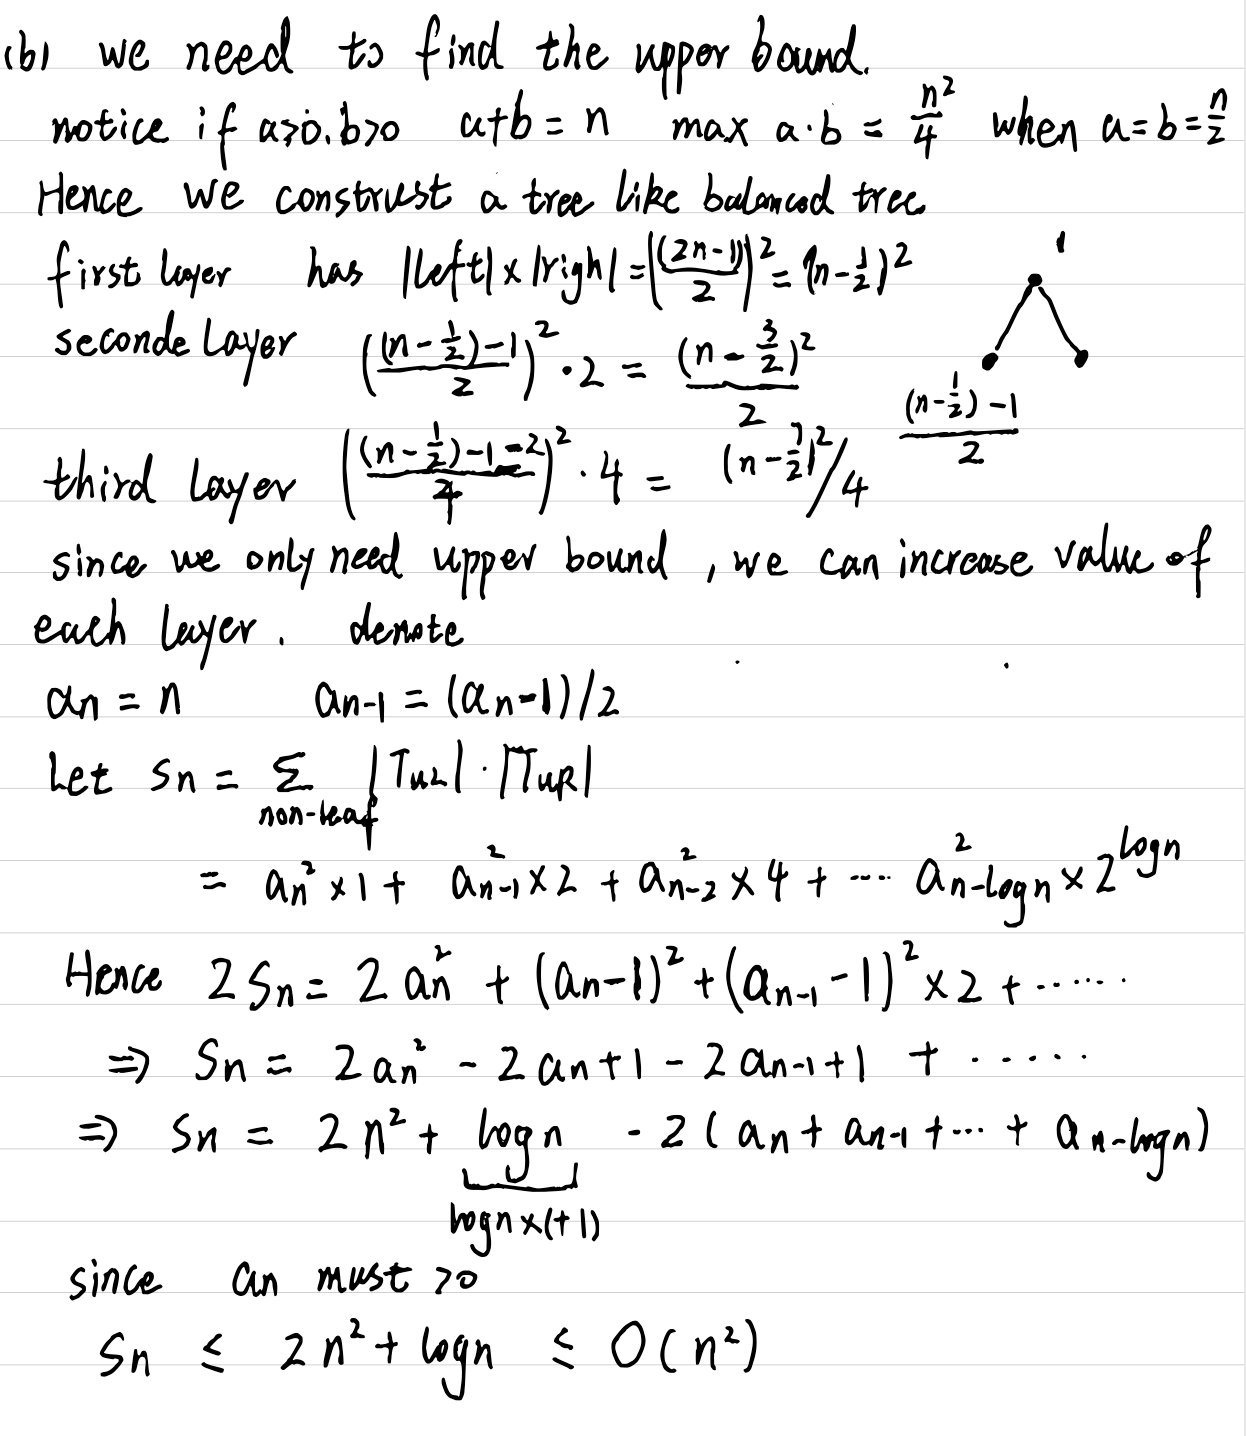 (b) we need to find the upper bound.
notice if a>0. b>0 a+b = n max a·b = n²/4 when a=b=n/2
Hence we construst a tree like balanced tree
first layer has |left|×|righ| = ((2n-1)/2)² = (n-1/2)²
1
seconde Layer (((n-1/2)-1)/2)² ·2 = (n-3/2)²/2
((n-1/2)-1)/2
third Layer (((n-1/2)-1-2)/4)² ·4 = (n-7/2)²/4
since we only need upper bound, we can increase value of
each layer. denote
an = n an-1 = (an-1)/2
Let Sn = Σ non-leaf |TuL|·|TuR|
= an²×1 + an-1²×2 + an-2²×4 + ... an-logn²×2^logn
Hence 2Sn = 2an² + (an-1)² + (an-1-1)²×2 + ......
⇒ Sn = 2an² - 2an+1 - 2an-1+1 + .....
⇒ Sn = 2n² + logn - 2(an + an-1 + ... + an-logn)
logn×(+1)
since an must >0
Sn ≤ 2n² + logn ≤ O(n²)